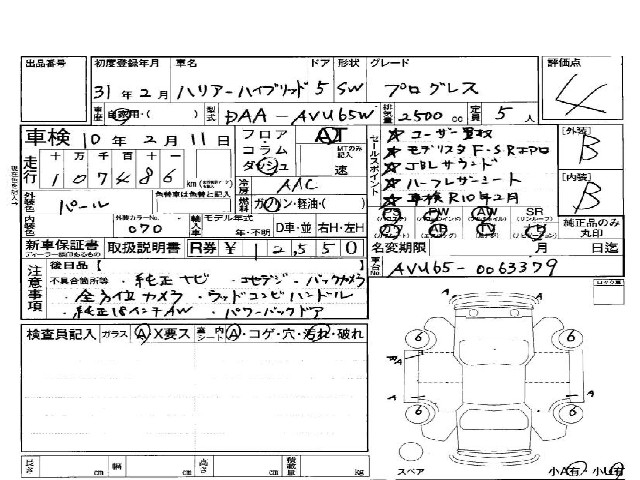 出品番号 初度登録年月 車名 ドア 形状 グレード 評価点
31年2月 ハリアーハイブリッド 5 SW プログレス 4
車歴 自家用・( ) 型式 DAA-AVU65W 排気量 2500cc 定員 5人
車検 10年2月11日 フロア AT ★ユーザー買取 [外装] B
走行 十万千百十一 コラム MTのみ記入 ★モデリスタF・S・Rエアロ
107486 km ダッシュ 速 ★JBLサウンド
外装色 パール 色替車は色替と記入 冷房 AAC ★ハーフレザーシート [内装] B
内装色 外装カラーNo. 070 燃料 ガソリン・軽油・( ) ★車検R10年2月
輸入車 モデル年式 年・不明 D車・並 右H・左H セールスポイント
PS PW AW SR 純正品のみ丸印
新車保証書 取扱説明書 R券 ¥12,550 名変期限 月 日迄
注意事項 後日品【 車台No. AVU65-0063379
不具合箇所等 ・純正ナビ ・コセデジ・バックカメラ
・全方位カメラ ・ウッドコンビハンドル
・純正18インチAW ・パワーバックドア
検査員記入 ガラス A X要ス 室内シート A・コゲ・穴・汚れ・破れ
6 6
A A
6 6
A
長さ cm 幅 cm 高さ cm 積載量 kg スペア 小A有 小U有